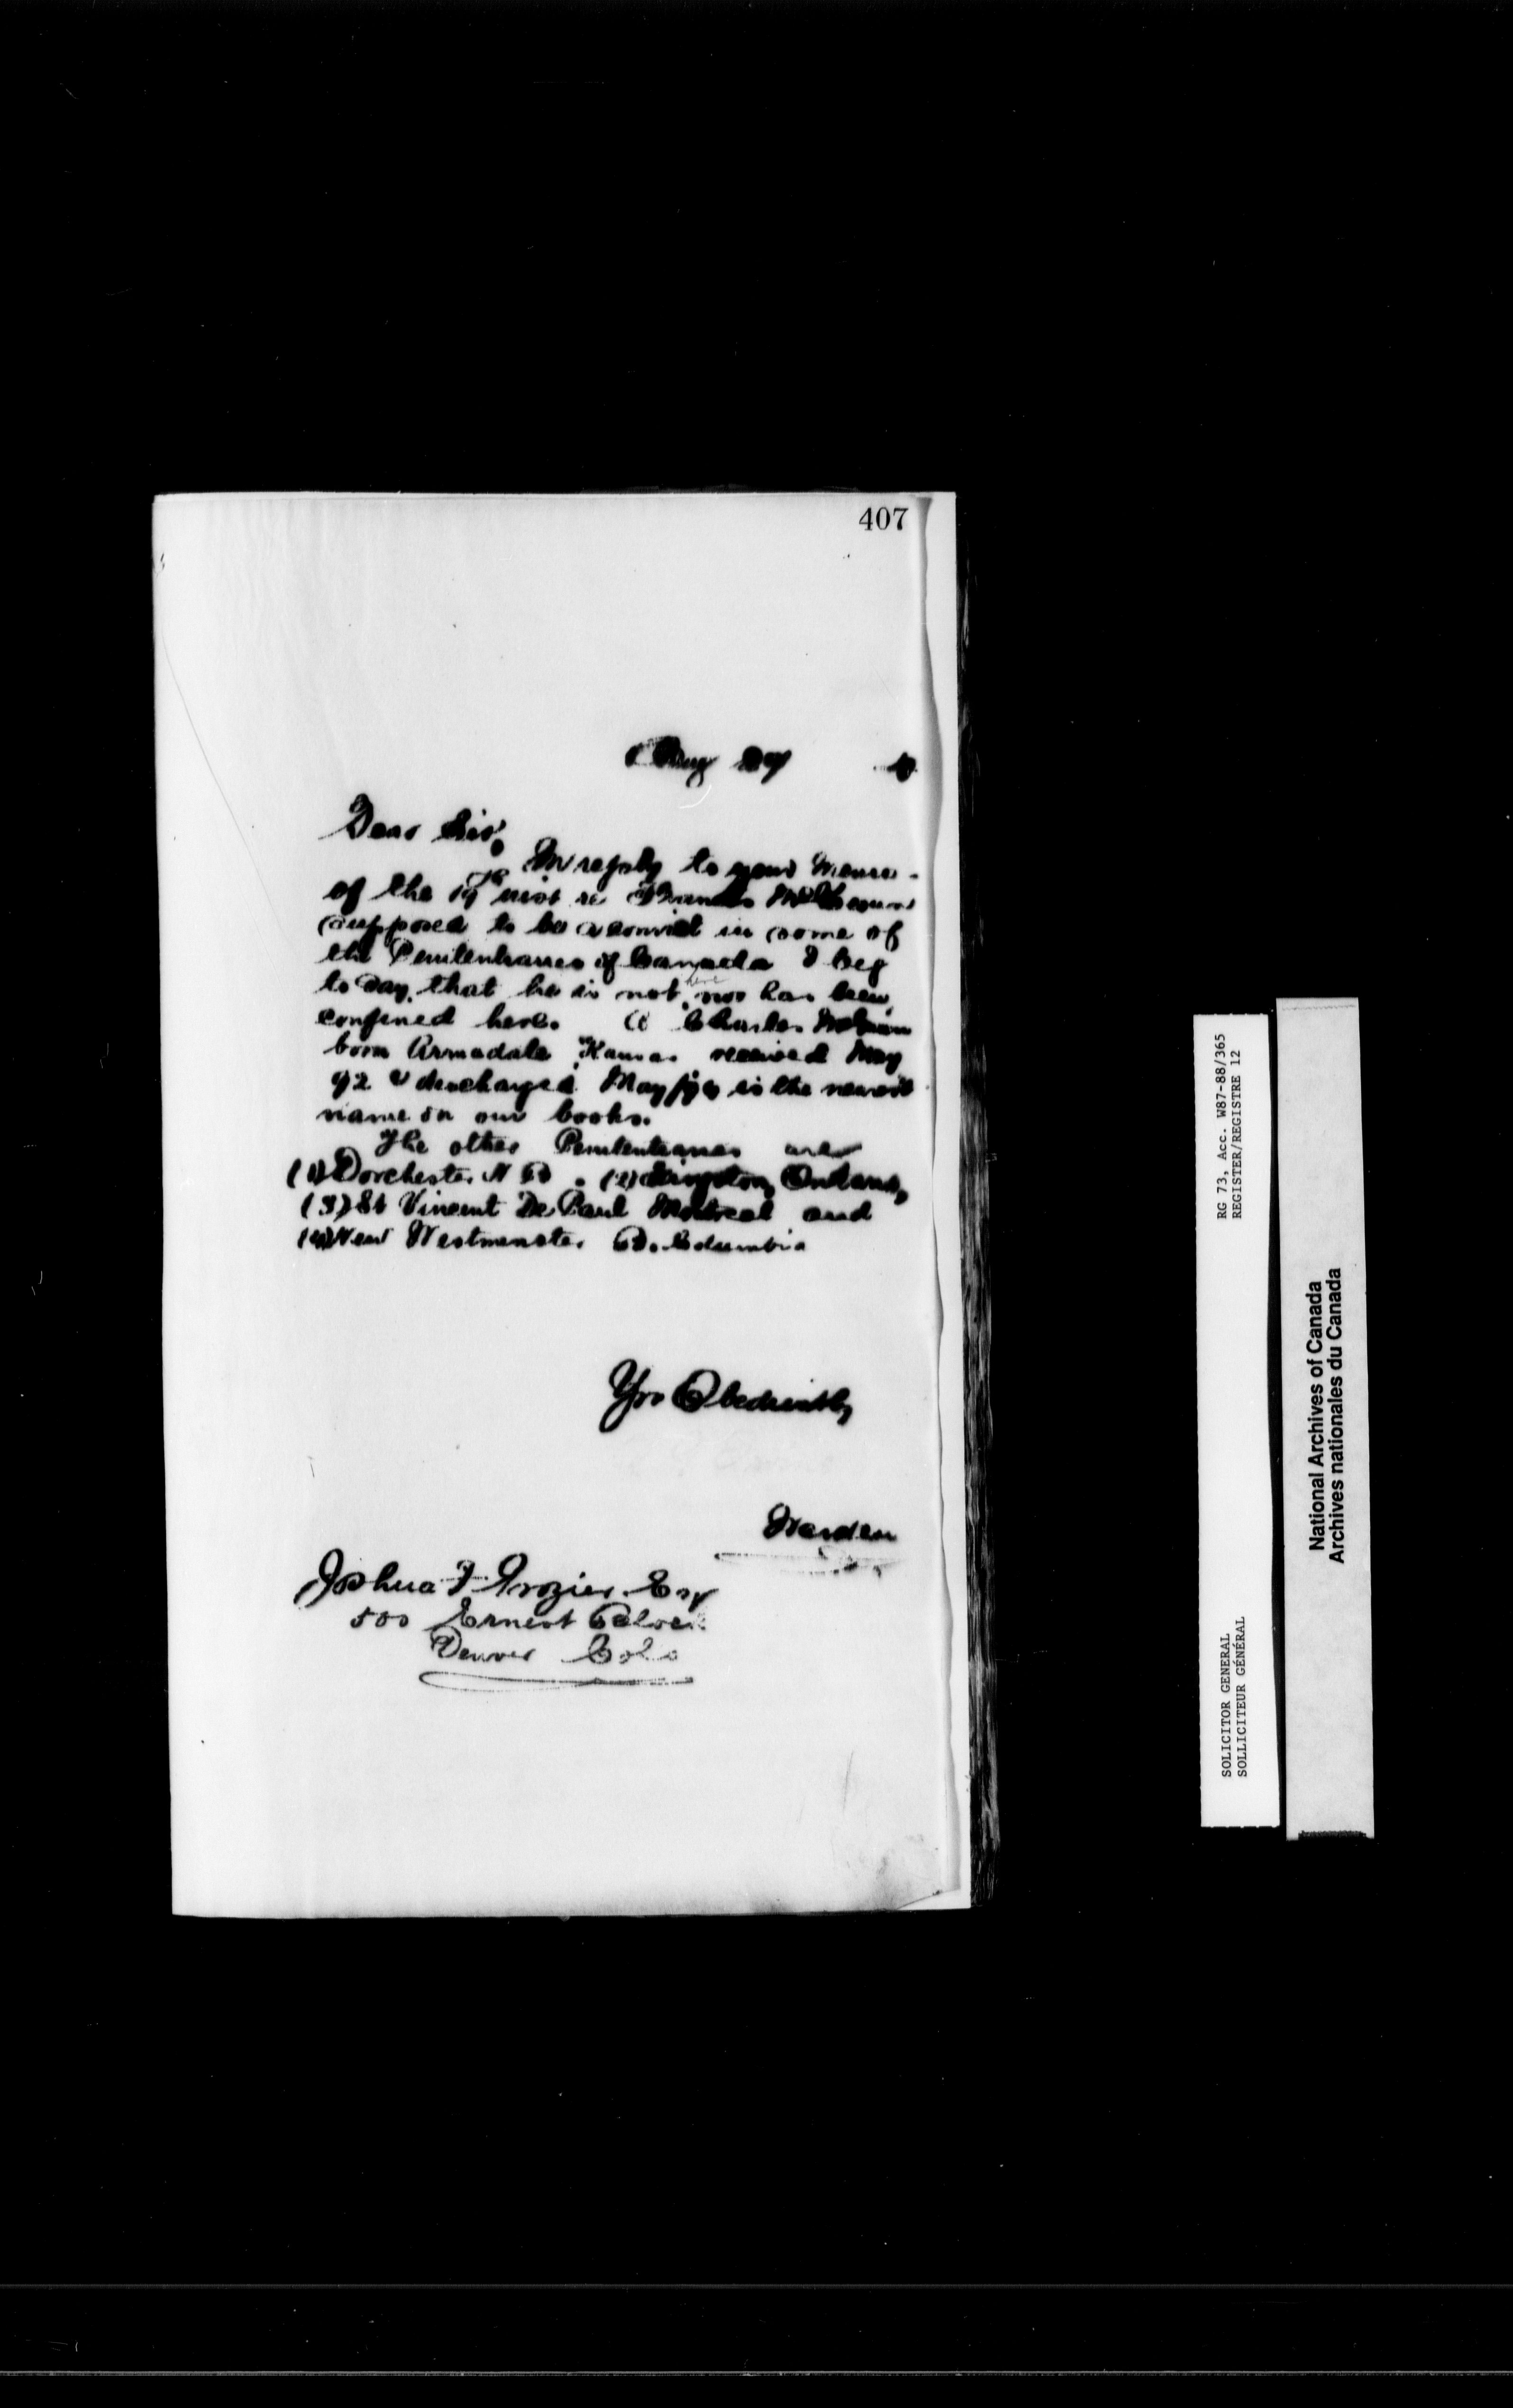 407
Aug 27
Dear Sir,
In reply to your
of the 19th inst re Thomas
supposed to be a convict in some of
the Penitentiaries of Canada I beg
to say, that he is not here nor has been
confined here. A Charles
born Armadale, Kansas received May
92 & discharged May is the nearest
name on our books.
The other Penitentiaries are
(1) Dorchester N B. (2) Kingston, Ontario,
(3) St Vincent De Paul Montreal and
(4) New Westminster B. Columbia
Yrs Obediently
Warden
Joshua F. Grozier Esq
500 Ernest Block
Denver Colo
RG 73, Acc. W87-88/365
REGISTER/REGISTRE 12
SOLICITOR GENERAL
SOLLICITEUR GÉNÉRAL
National Archives of Canada
Archives nationales du Canada